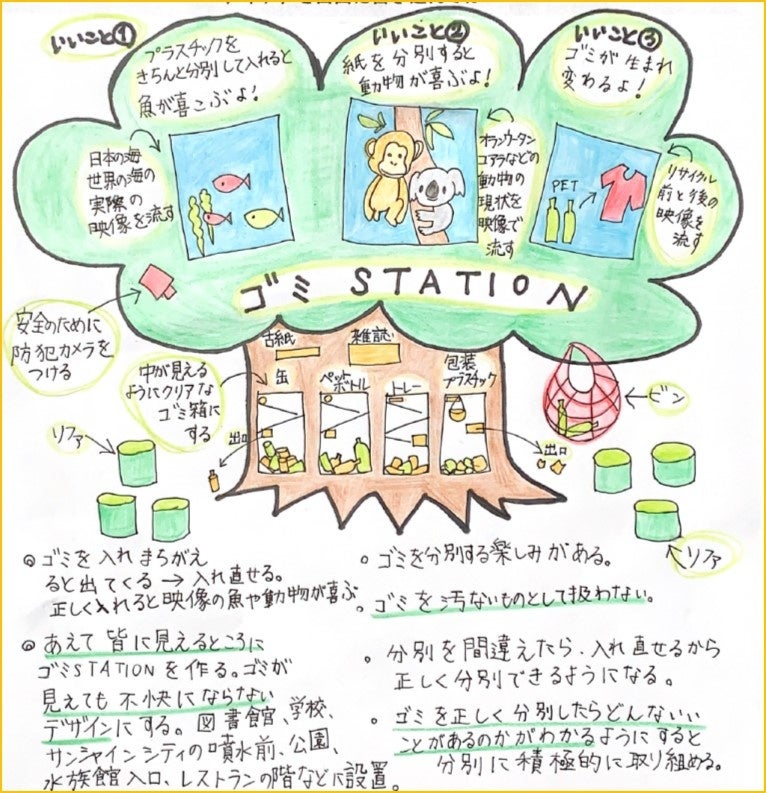 いいこと①
プラスチックを
きちんと分別して入れると
魚が喜こぶよ!
いいこと②
紙を分別すると
動物が喜ぶよ!
いいこと③
ゴミが生まれ
変わるよ!
日本の海
世界の海の
実際の
映像を流す
オランウータン
コアラなどの
動物の
現状を
映像で
流す
PET
リサイクル
前と後の
映像を
流す
ゴミ STATION
安全のために
防犯カメラを
つける
中が見える
ようにクリアな
ゴミ箱に
する
古紙
雑誌
缶
ペット
ボトル
トレー
包装
プラスチック
出口
出口
ビン
リファ
リファ
◎ゴミを入れまちがえ
ると出てくる→入れ直せる。
正しく入れると映像の魚や動物が喜ぶ。
◎あえて皆に見えるところに
ゴミSTATIONを作る。ゴミが
見えても不快にならない
デザインにする。図書館、学校、
サンシャインシティの噴水前、公園、
水族館入口、レストランの階などに設置。
。ゴミを分別する楽しみがある。
。ゴミを汚ないものとして扱わない。
。分別を間違えたら、入れ直せるから
正しく分別できるようになる。
。ゴミを正しく分別したらどんないい
ことがあるのかがわかるようにすると
分別に積極的に取り組める。